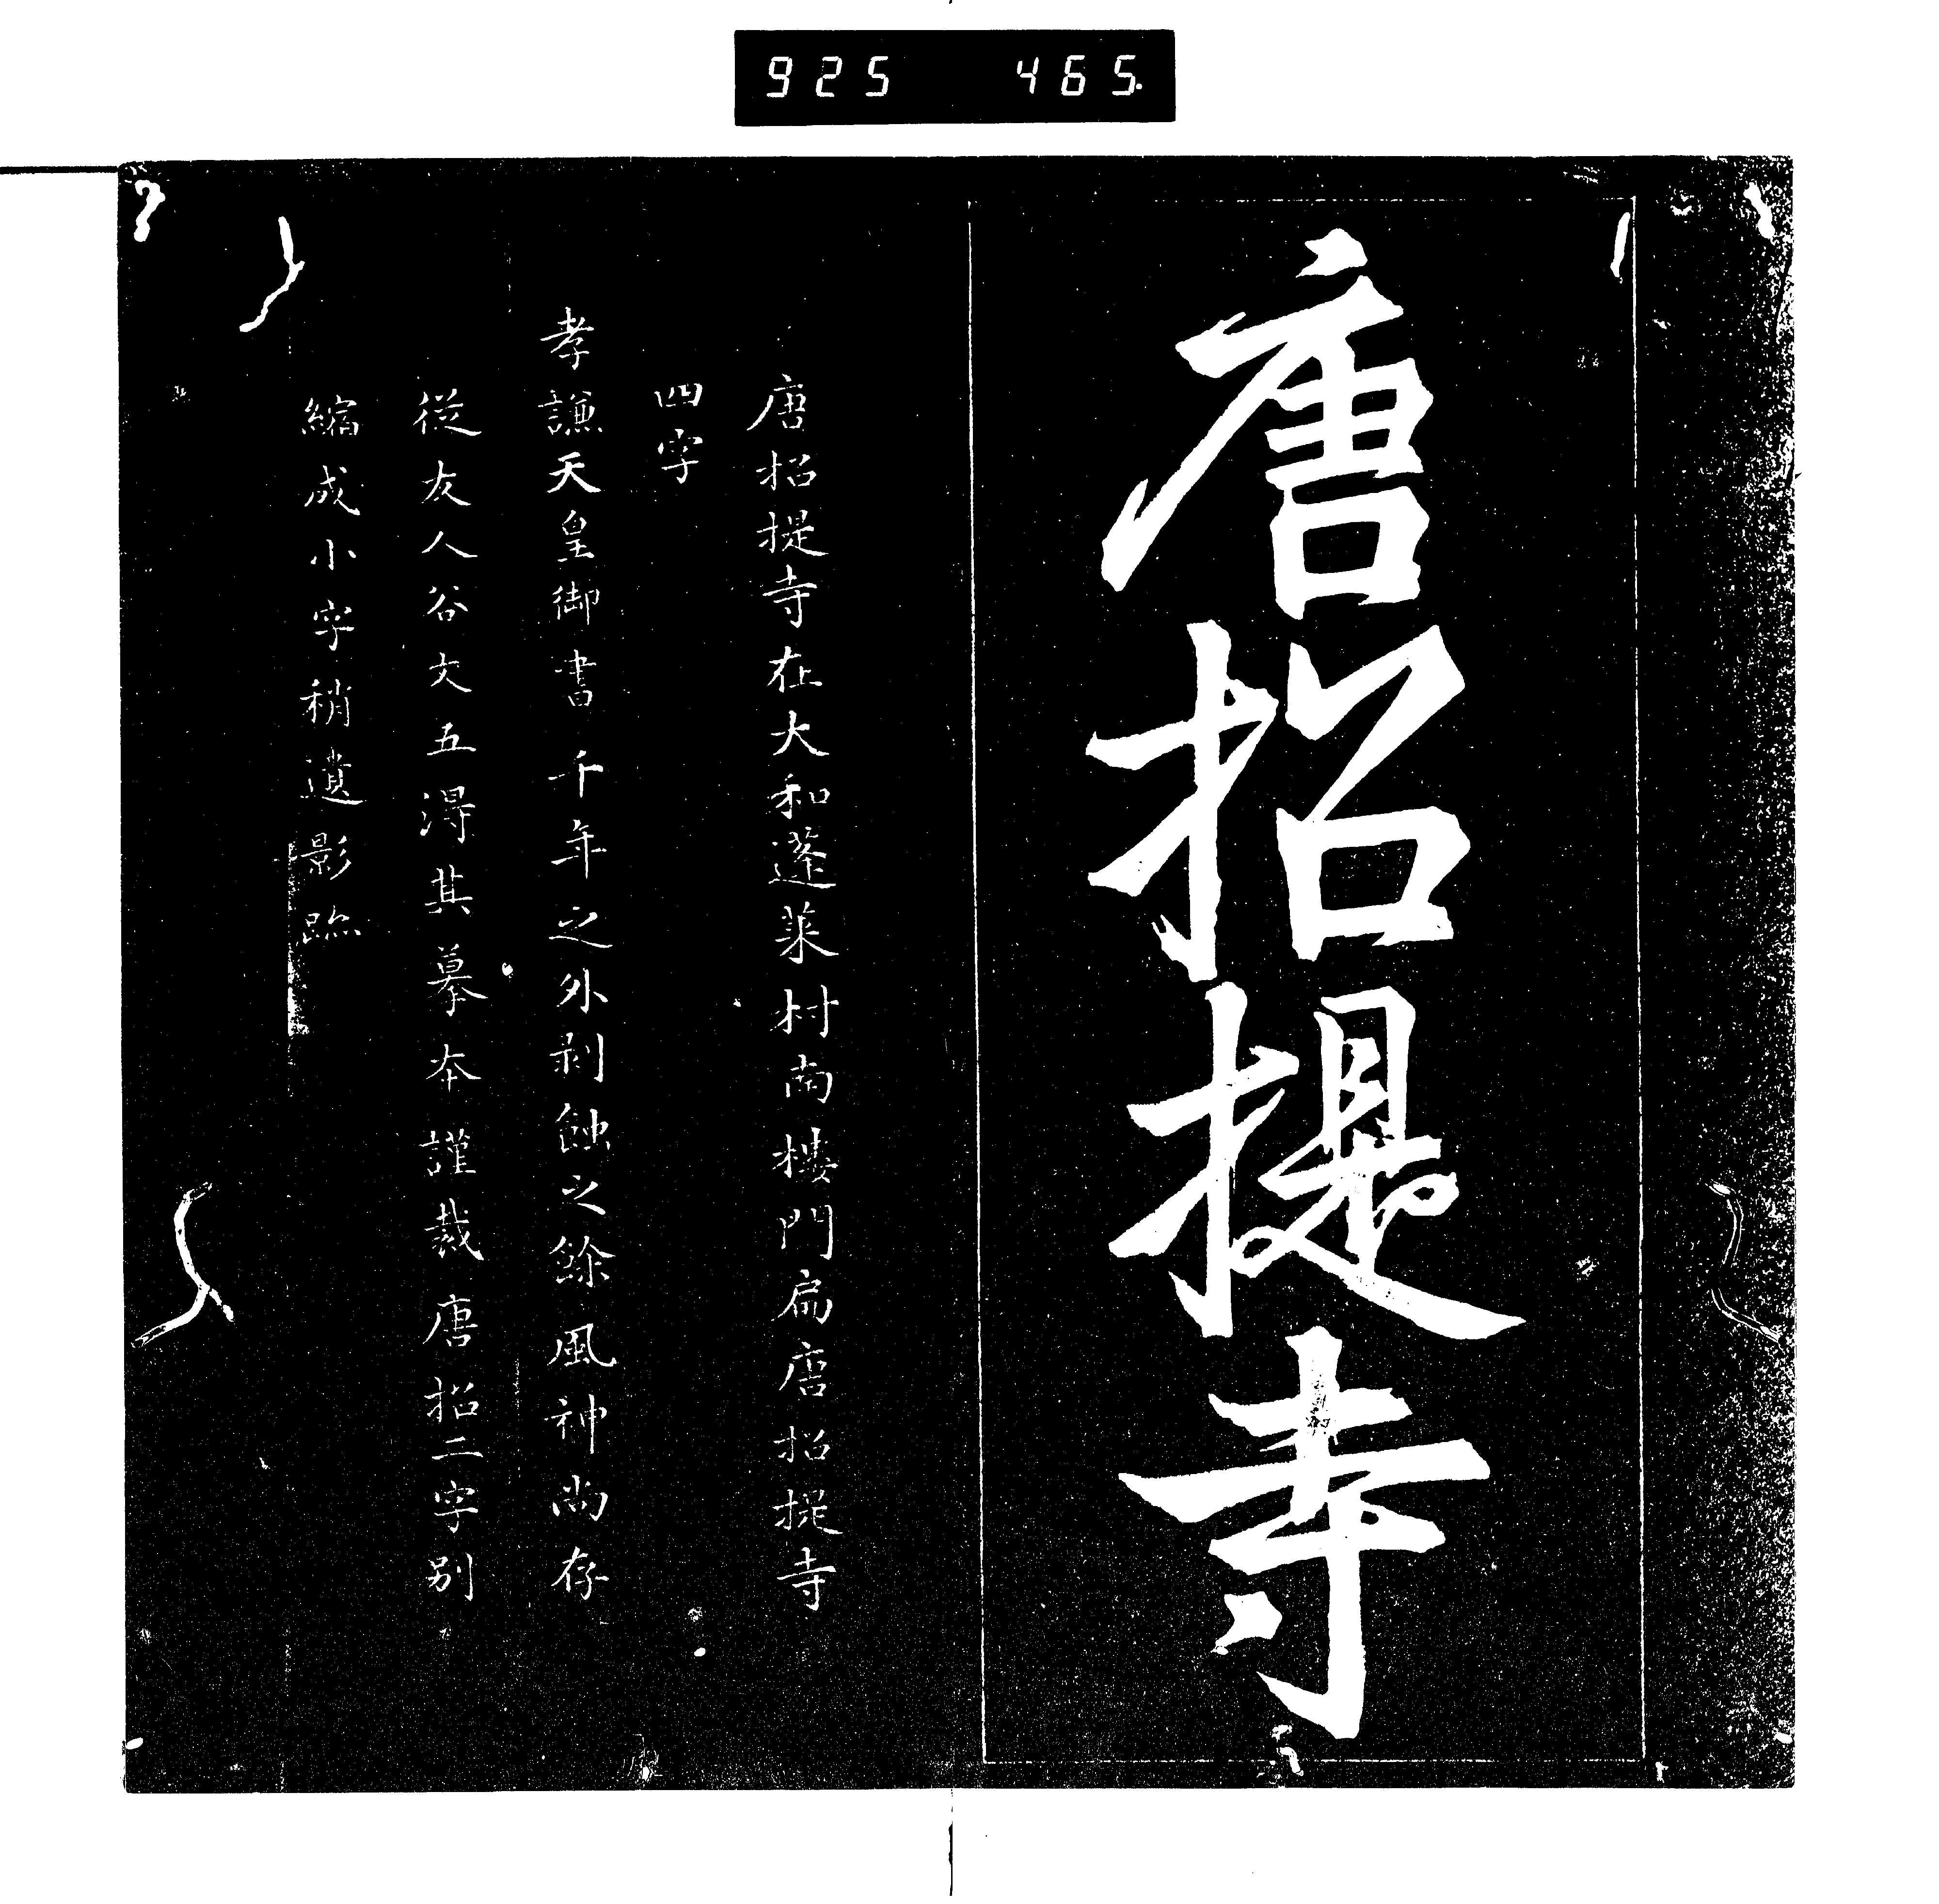 925 465.
唐招提寺
唐招提寺在大和蓬萊村南樓門扁唐招提寺
四字
孝謙天皇御書千年之外剥蝕之餘風神尚存
從友人谷文五得其摹本謹裁唐招二字别
縮成小字稍遺影跡